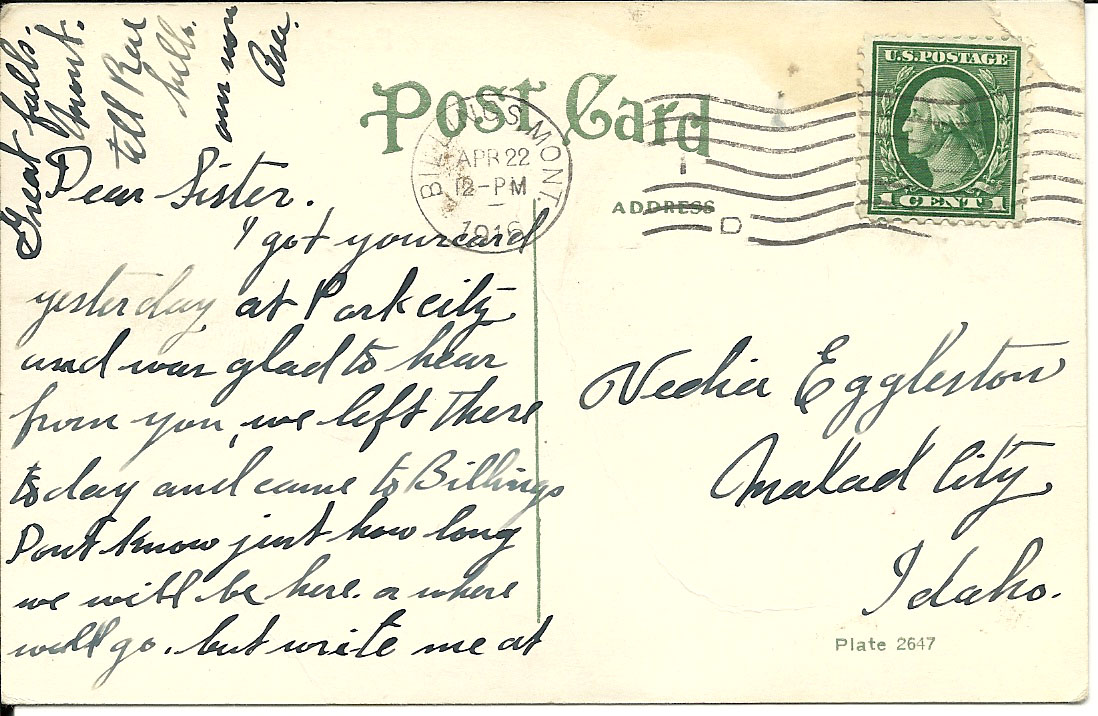 Post Card
U.S. POSTAGE
1 CENT 1
BILLINGS, MONT.
APR 22
12-PM
1916
D
ADDRESS
Dear Sister.
I got your card
yesterday at Park city
and was glad to hear
from you, we left there
to day and came to Billings
Dont know just how long
we will be here. or where
will go. but write me at
Great falls.
Mont.
tell
hello.
Nedia Eggleston
Malad City
Idaho.
Plate 2647